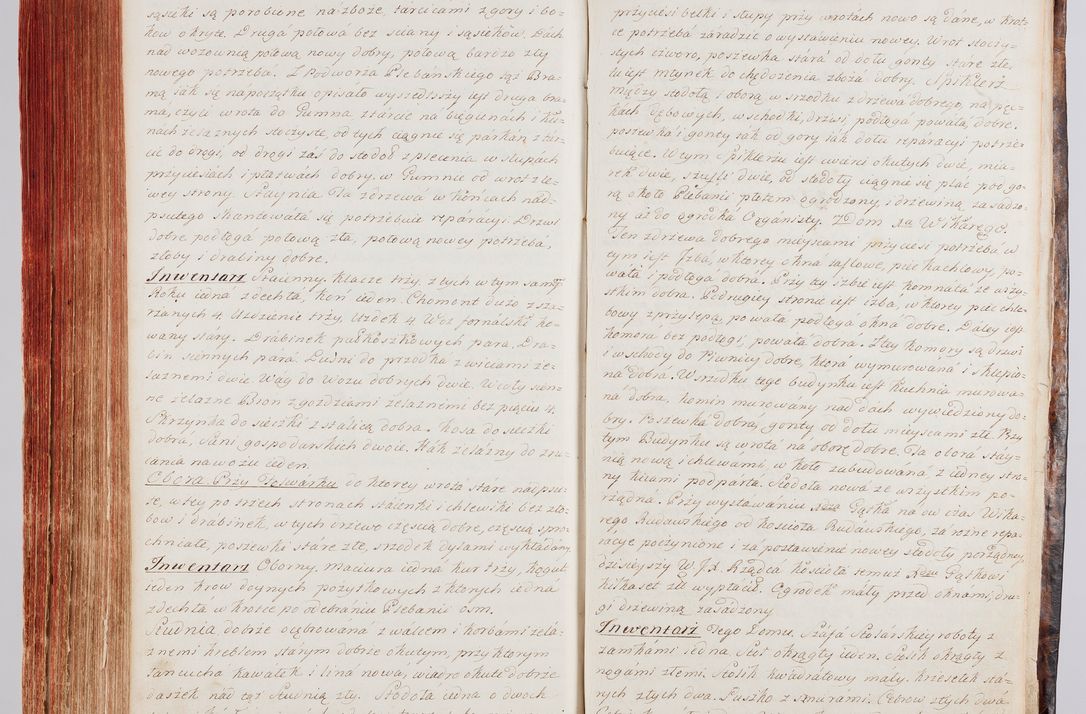 sąsieki są porobione na zboże, tarcicami z gory i bo-
kow okryte. Druga połowa bez sciany i sąsiekow. Dach
nad wozownią połową nowy dobry, połową bardzo zły
nowego potrzeba. Z Podworza Plebańskiego sąż Bra-
ma jak się na początku opisało wyszedszy iest druga bra-
ma, czyli wrota do Gumna z tarcic na biegunach i
nach żelaznych stoczyste, od tych ciągnie się parkan z tar-
cic do drogi, od drogi zaś do stodoł z plecenia w słupach
przyciesiach i płatwach dobry. w Gumnie od wrot z le-
wey strony. Staynia Ta z drzewa w końcach nad-
psutego skantowała się potrzebuie reparacyi. Drzwi
dobre podłogá połową zła, połową nowey potrzeba,
żłoby i drabiny dobre.
Inwentarz Staienny. Klacze trzy, z tych w tym samym
Roku iedna zdechła, koń ieden. Chomont dużo z sza-
rżanych 4. Uzdzienie trzy. Uzdek 4. Woz fornalski ko-
wany stáry. Drábinek pułkoszkowych para. Dra-
bin siennych para. Luśni do przodka z wiciami że-
laznemi dwie. Wag do wozu dobrych dwie. Widły sien-
ne żelazne Bron z gozdziami żelaznemi bez pięciu 4.
Skrzynka do sieczki z stalicą dobra. Kosa do sieczki
dobra, Sani gospodarskich dwoie. Hak żelazny do zru-
cania nawozu ieden.
Obora Przy Folwarku do ktorey wrota stáre nadpsu-
te, w tey po trzech stronach staienki i chlewiki bez żło-
bow i drabinek, w tych drzewo częscią dobre, częscią spro-
chniałe, poszewki stáre złe, srzodek dylami wykładany.
Inwentarz Oborny. maciura iedna kur trzy, kogut
ieden krow doynych pożytkowych z ktorych iedna
zdechła w krotce po odebraniu Plebanii osm.
Studnia dobrze ocębrowaná z wałcem i korbámi żela-
znemi hreblem stárym dobrze okutym, przy ktorym
łancucha kawałek i lina nowa, wiadro okute dobrze
daszek nad tąż Studnią zły. Stodoła iedna o dwoch
przyciesi belki i słupy przy wrotach nowo są dáne, w krot-
ce potrzeba zaradzic o wystawieniu nowey. Wrot stoczy-
stych czworo, poszewka stárá od dołu gonty stáre złe,
tu iest młynek do chędożenia zboża dobry. Spiklerz
między stodołą i oborą w srzodku z drzewa dobrego, na pę-
kach dębowych, w schodki, drzwi podłoga powała, dobre.
poszewka i gonty iak od gory iak dołu reparacyi potrze-
buiące. W tym Spiklerzu iest cwierci okutych dwie, mia-
rek dwie, szufli dwie, od stodoły ciągnie się płac pod go-
rą około Plebanii płotem ogrodzony, i drzewiną zasadzo-
ny aż do ogrodka Organisty. Dom na Wikárego.
Ten z drzewa dobrego mieyscami przyciesi potrzeba w
tym iest Izba, w ktorey okna taflowe, piec kachlowy, po-
wała i podłoga dobra. Przy tey izbie iest komnata ze wszy-
stkim dobra. Po drugiey stronie iest izba, w ktorey piec chle-
bowy z przysłepą powała podłogá okna dobre. Daley iest
komora bez podłogi, powała dobra. Z tey komory są drzwi
i w schody do Piwnicy dobre, ktorá wymurowaná i sklepio-
na dobrá. W srzodku tego budynku iest kuchnia murowa-
na dobra, komin murowány nad dach wywiedziony do-
bry. Poszewka dobrá, gonty od dołu mieyscami złe. Przy
tym Budynku są wrota na oborę dobre. Ta obora stay-
nią nową i chlewami w koło zabudowana, z iedney stro-
ny kiiami podparta. Stodoła nowá ze wszystkim po-
rządna. Przy wystawieniu Xdza Gąska na ow czas Wika-
rego Rudawskiego od kościoła Rudawskiego, za rożne repa-
racye poczynione i zá postawienie nowey stodoły porządney,
dzisieyszy W.J.X. Rządca kościoła temuż Xdzu Gąskowi
kilkaset złł wypłacił. Ogrodek mały przed oknami, dru-
gi drzewiną zasádzony
Inwentarz Tego Domu. Szafá Stolarskiey roboty z
zamkámi iedna. Stoł okrągły ieden. Stolik okrągły z
nogámi złemi. Stolik kwadratowy mały. krzesełek stá-
rych złych dwa. Łuszko z sznurámi. Cebrow złych dwá.